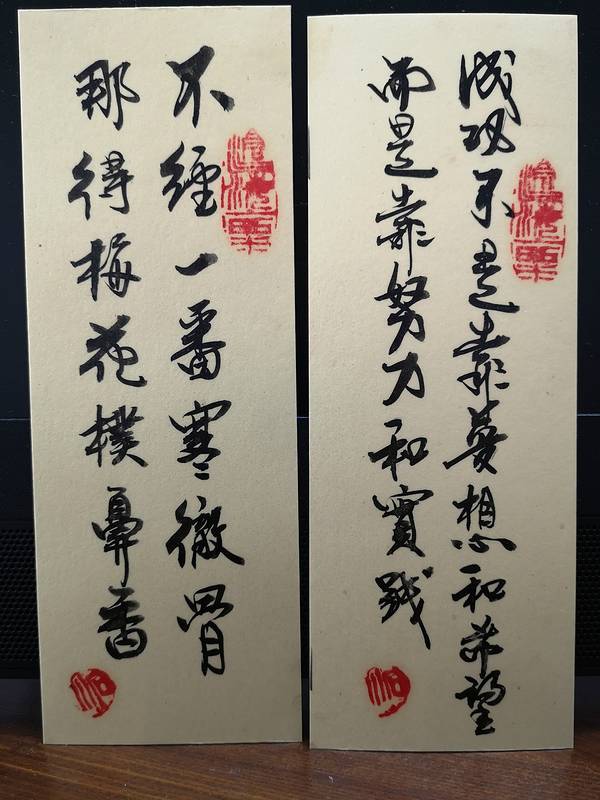 成功不是靠夢想和希望
而是靠努力和實踐
不經一番寒徹骨
那得梅花樸鼻香